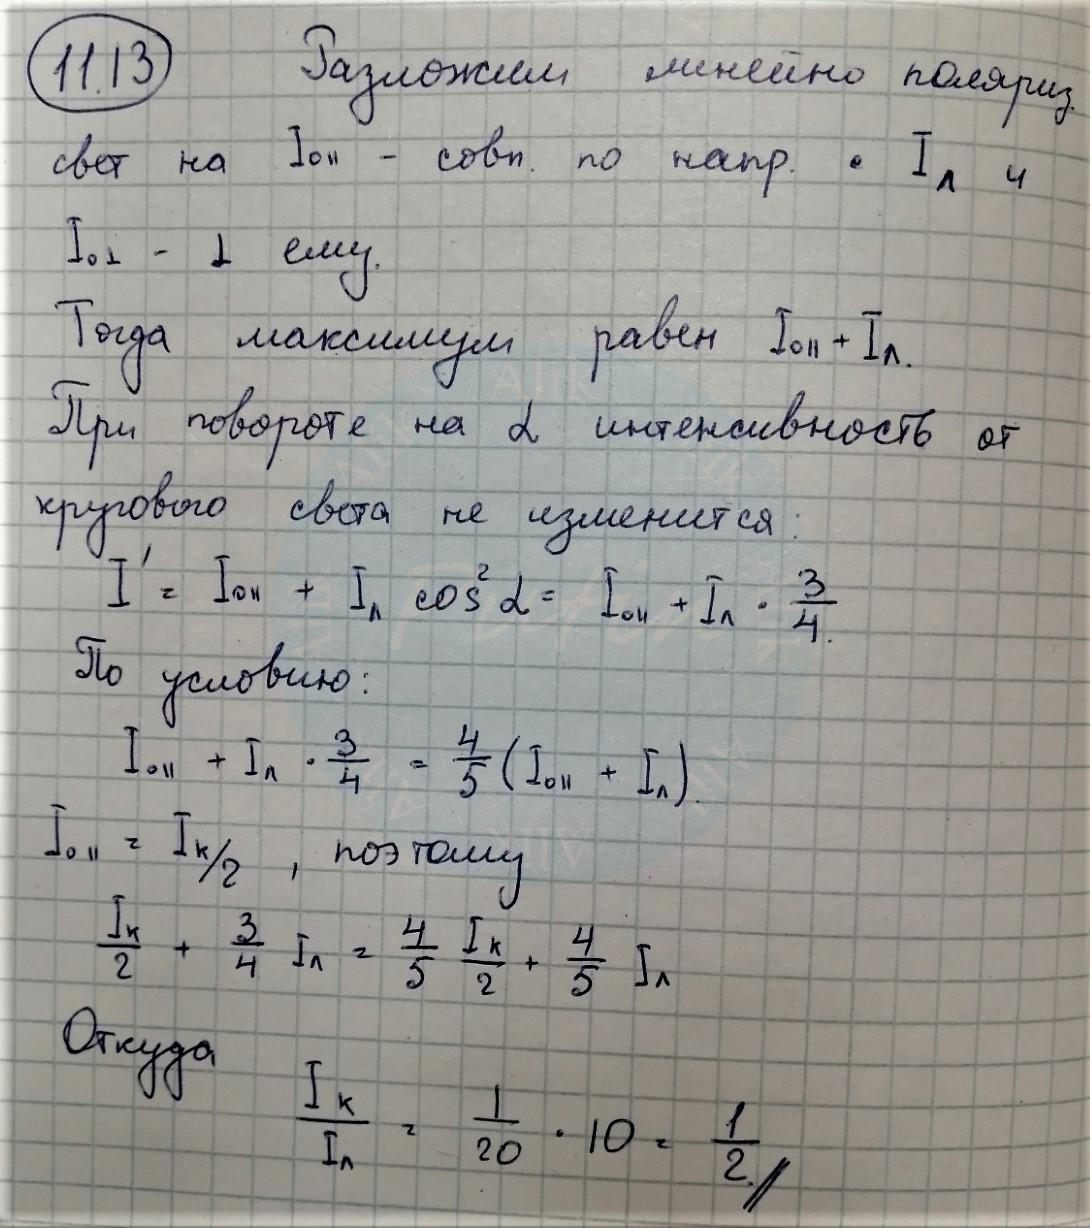 11.13 Разложим линейно поляриз.
свет на I₀∥ - совп. по напр. с Iл и
I₀⊥ - ⊥ ему.
Тогда максимум равен I₀∥ + Iл.
При повороте на α интенсивность от
кругового света не изменится:
I' = I₀∥ + Iл cos²α = I₀∥ + Iл · 3/4.
По условию:
I₀∥ + Iл · 3/4 = 4/5 (I₀∥ + Iл).
I₀∥ = Iк/2, поэтому
Iк/2 + 3/4 Iл = 4/5 Iк/2 + 4/5 Iл
Откуда
Iк/Iл = 1/20 · 10 = 1/2 //